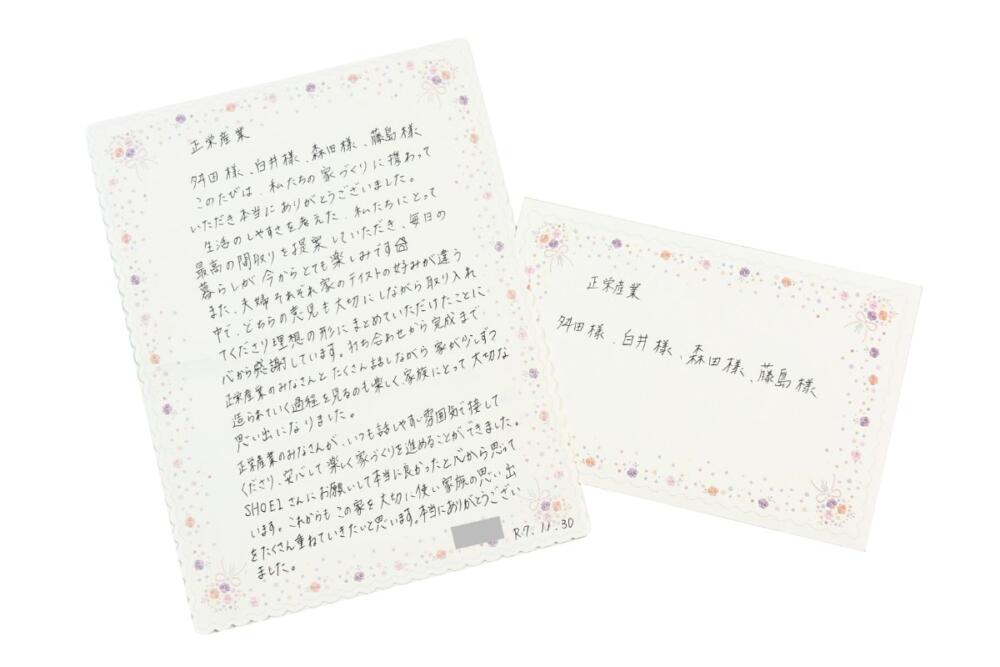 正栄産業
多田様、白井様、森田様、藤島様
このたびは、私たちの家づくりに携わって
いただき本当にありがとうございました。
生活のしやすさを考えた、私たちにとって
最高の間取りを提案していただき、毎日の
暮らしが今からとても楽しみです
また、夫婦それぞれ家のテイストの好みが違う
中で、どちらの意見も大切にしながら取り入れ
てくださり理想の形にまとめていただけたことに、
心から感謝しています。打ち合わせから完成まで
正栄産業のみなさんとたくさん話しながら家が少しずつ
造られていく過程を見るのも楽しく、家族にとって大切な
思い出になりました。
正栄産業のみなさんが、いつも話しやすい雰囲気で接して
くださり、安心して楽しく家づくりを進めることができました。
SHOEIさんにお願いして本当に良かったと心から思って
います。これからもこの家を大切に使い家族の思い出
をたくさん重ねていきたいと思います。本当にありがとうござい
ました。
R7.11.30
正栄産業
多田様、白井様、森田様、藤島様